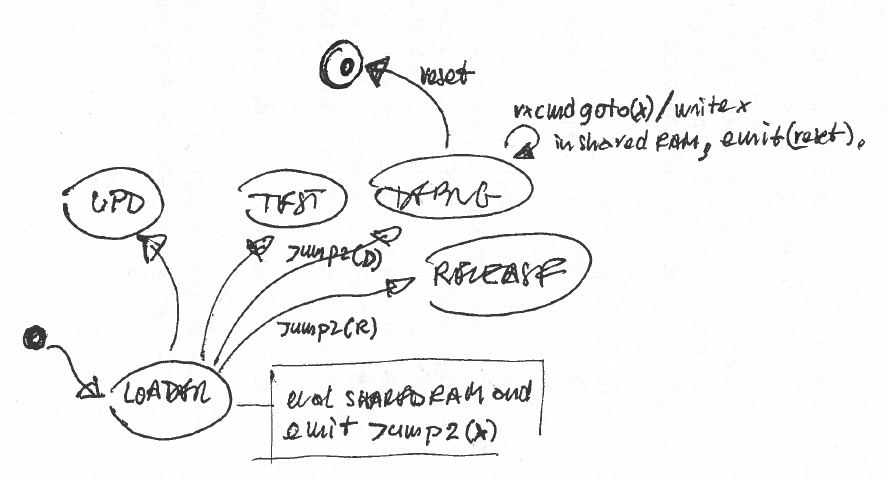 reset
rxcmd goto(x)/write x
in shared RAM, emit(reset).
UPD
TEST
DEBUG
Jump2(D)
RELEASE
Jump2(R)
LOADER
eval SHAREDRAM and
emit Jump2(x)